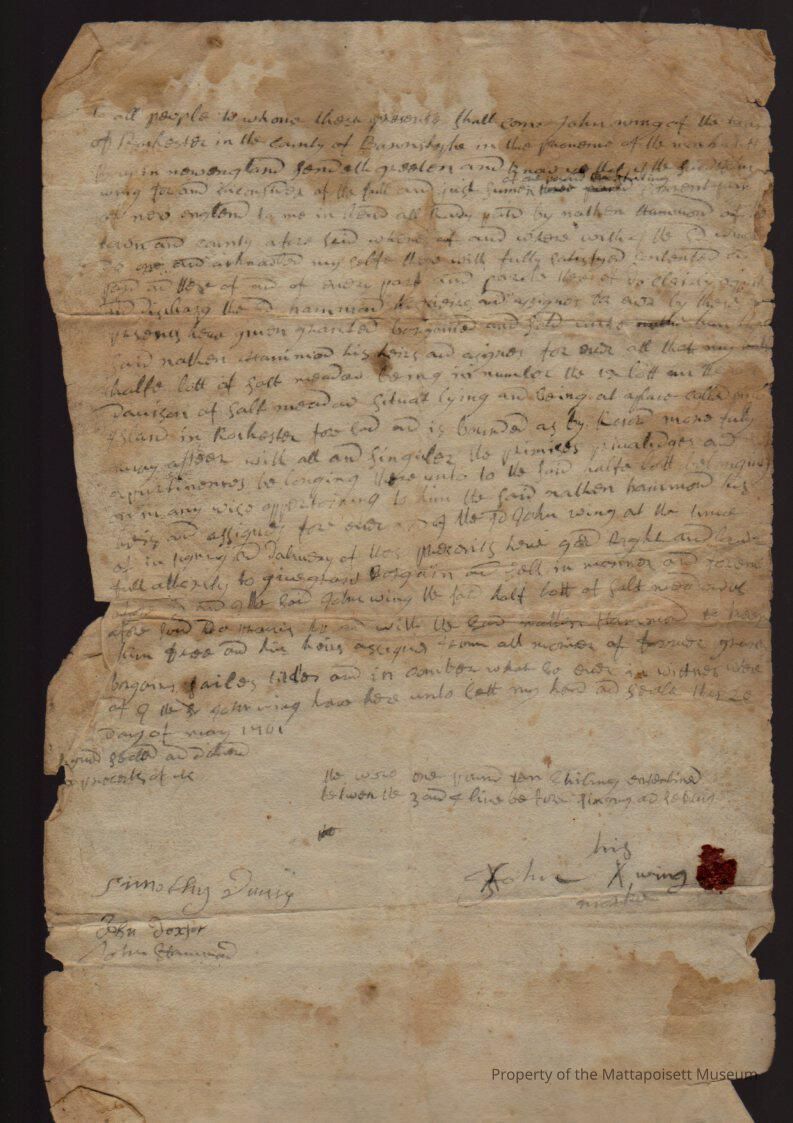 To all people to whome these presents shall come John wing of the town
of Rochester in the County of Barnstable in the province of the
bay in newengland sendeth greeten and know ye that I the said John
of one pound ten shiling
wing for and in consider of the full and just sume of Corrent
of new england to me in hand all Redy paid by nathen Hammond of
town and county afore said where of and where with I the sd
do and acknowled my selfe there with fully satisfied contented and
paid and there of and of every part and parcle there of do
and discharg the sd hammond his heires and assignes for ever by these
presents have given granted bargained and sold unto
said nathen Hammond his heirs and asignes for ever all that my
halfe lott of salt meadow being in number the 12 lott in the
Davison of salt meadow situat lying and being at a place called
Island in Rochester fore sad and is bounded as by Record more fully
may appeer with all and singuler the primises privalidges and
appurtinences be longing there unto to the said halfe lott belonging
or in any wise appertaining to him the said nathen hammond his
heirs and assignes fore ever and I the sd John wing at the time
of in signing and Dalivery of thes presents have god Right and
full athority to give grant bargain and sell in manner and forme
afore sd and I the said John wing the said half lott of salt meadow as
afore said Do promis to and with the said nathan Hammond to keep
him free and his heirs assignes from all manner of former grants
bargains sailes titles and in comber what so ever in witnes were
of I the sd John wing have here unto sett my hand and seale this 26
Day of may 1701
signed sealed and delivered
in presents of us
the words one pound ten shiling enterlined
between the 3 and 4 line be fore signing and sealing
his
John X wing
marke
Timothy Davis
John Doxfor
John Hammond
Property of the Mattapoisett Museum